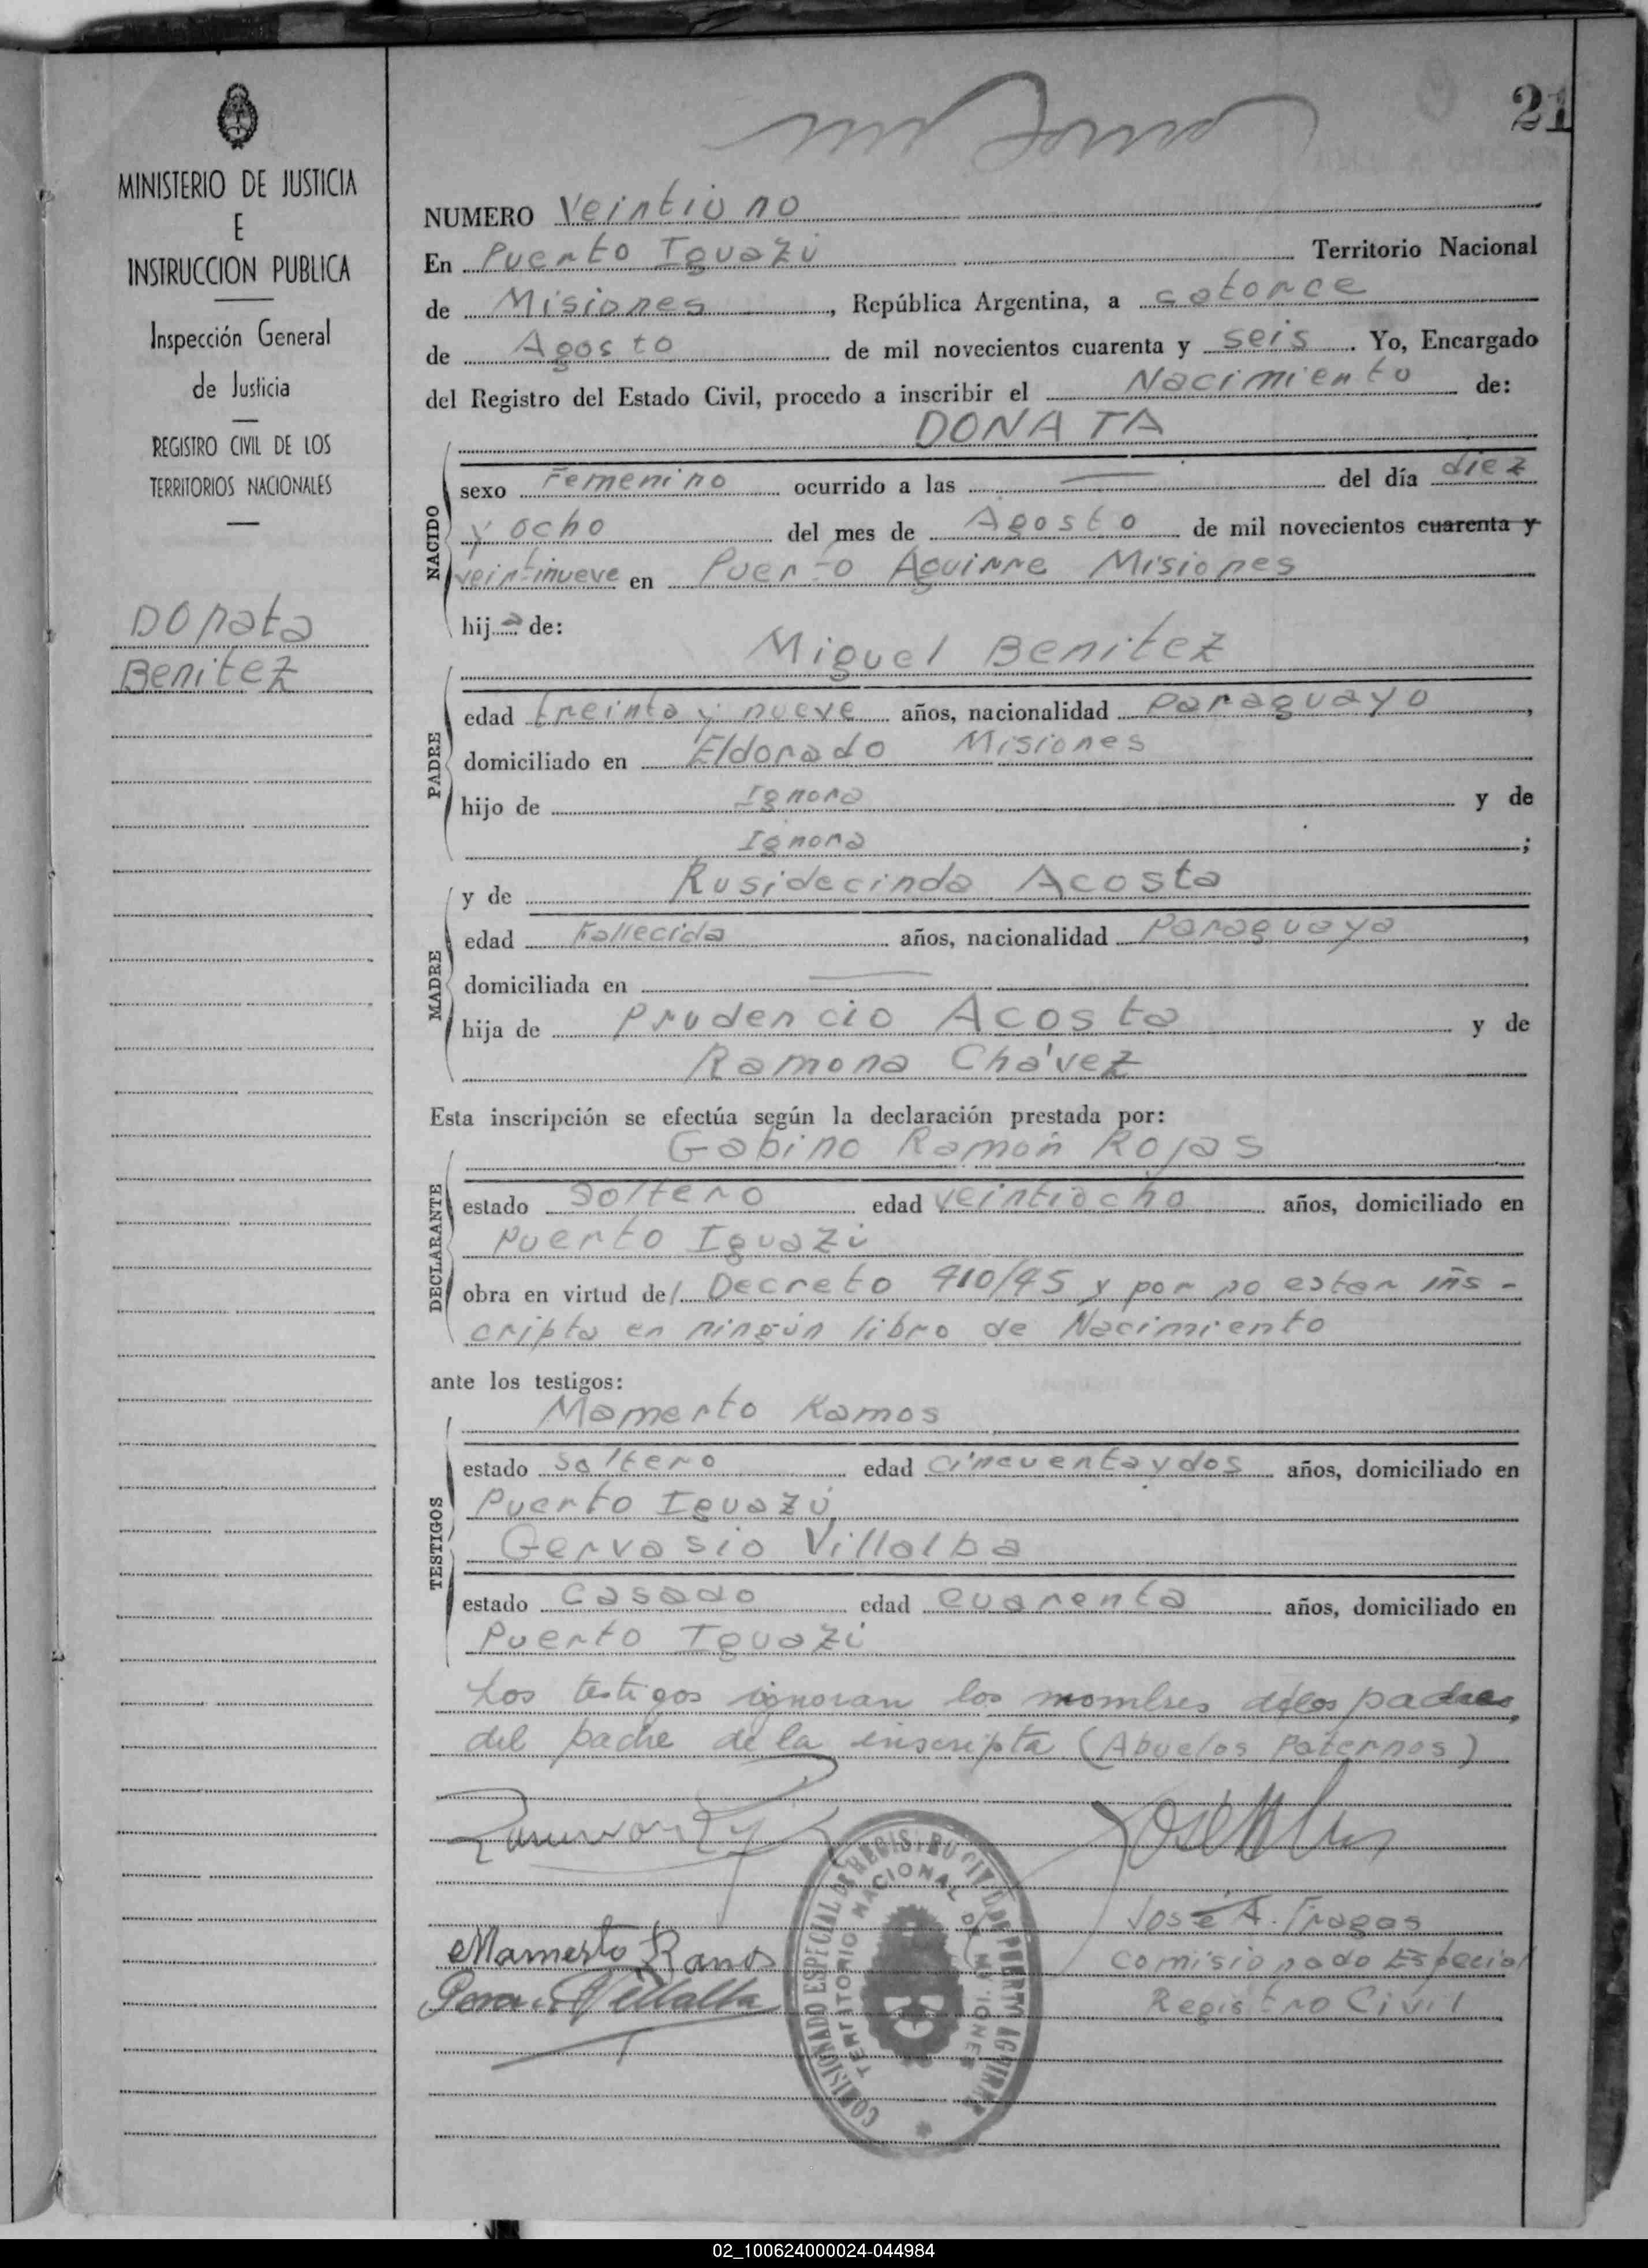 21
MINISTERIO DE JUSTICIA
E
INSTRUCCION PUBLICA
Inspección General
de Justicia
REGISTRO CIVIL DE LOS
TERRITORIOS NACIONALES
Donata
Benitez
NUMERO Veintiuno
En Puerto Iguazú Territorio Nacional
de Misiones, República Argentina, a catorce
de Agosto de mil novecientos cuarenta y seis. Yo, Encargado
del Registro del Estado Civil, procedo a inscribir el Nacimiento de:
DONATA
NACIDO
sexo Femenino ocurrido a las — del día diez
y ocho del mes de Agosto de mil novecientos cuarenta y
veintinueve en Puerto Aguirre Misiones
hija de:
Miguel Benitez
PADRE
edad treinta y nueve años, nacionalidad Paraguayo,
domiciliado en Eldorado Misiones
hijo de Ignora y de
Ignora;
MADRE
y de Rusidecinda Acosta
edad Fallecida años, nacionalidad Paraguaya,
domiciliada en —
hija de Prudencio Acosta y de
Ramona Chávez
Esta inscripción se efectúa según la declaración prestada por:
Gabino Ramón Rojas
DECLARANTE
estado Soltero edad veintiocho años, domiciliado en
Puerto Iguazú
obra en virtud del Decreto 410/45 y por no estar ins-
cripta en ningún libro de Nacimiento
ante los testigos:
Mamerto Ramos
TESTIGOS
estado Soltero edad cincuenta y dos años, domiciliado en
Puerto Iguazú
Gervasio Villalba
estado Casado edad cuarenta años, domiciliado en
Puerto Iguazú
Los testigos ignoran los nombres de los padres,
del padre de la inscripta (Abuelos Paternos)
José A. Fragas
Comisionado Especial
Registro Civil
Mamerto Ramos
Villalba
COMISIONADO ESPECIAL DE REGISTRO CIVIL DE PUERTO AGUIRRE
TERRITORIO NACIONAL DE MISIONES
02_100624000024-044984